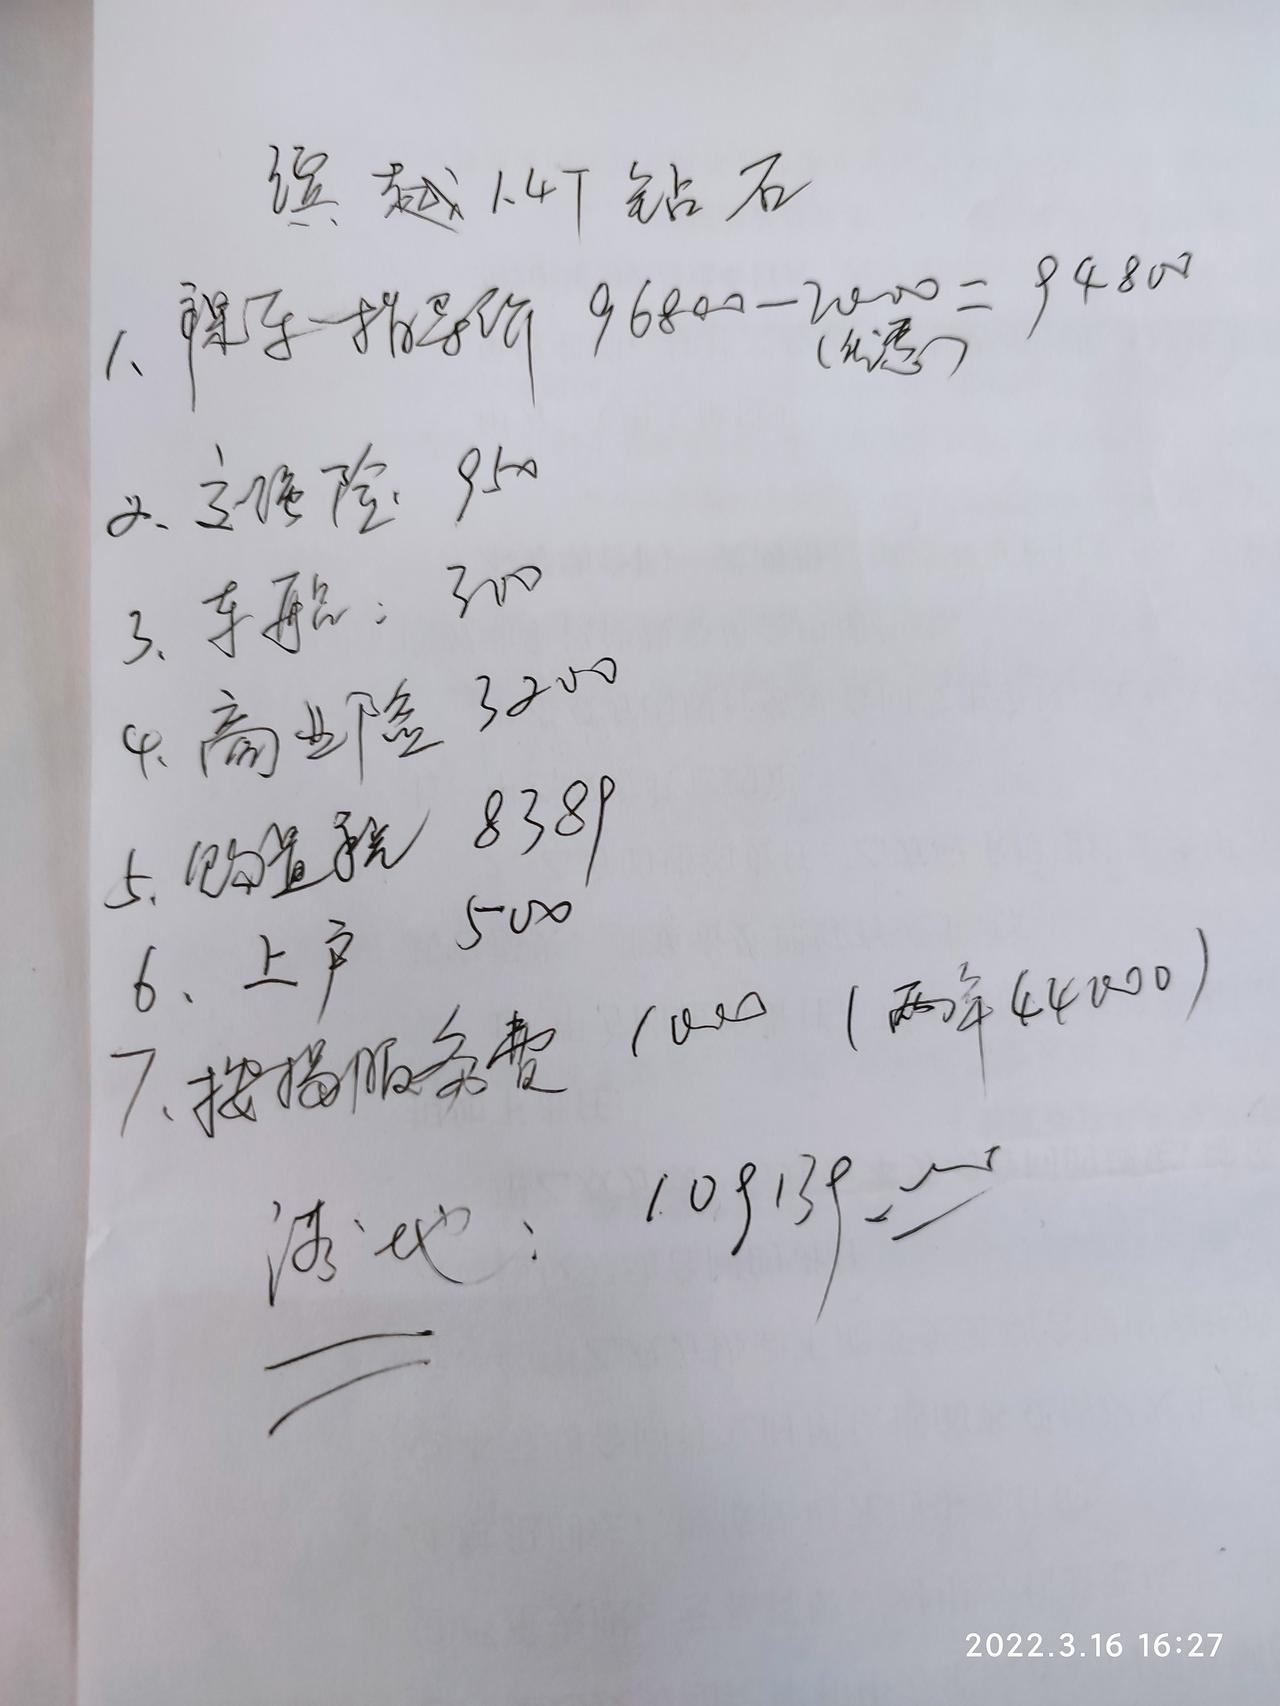 缤越1.4T钻石
1、裸车一指导价 96800-2000=94800
(优惠)
2、交强险. 950
3、车船: 300
4、商业险 3200
5、购置税 8389
6、上户 500
7、按揭服务费 1000 (两年44000)
落地: 109139.
2022.3.16 16:27